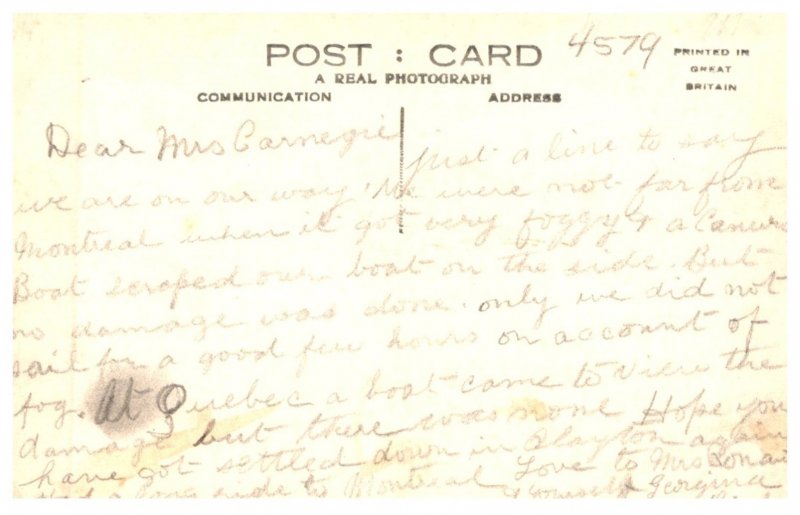 POST : CARD
4579
PRINTED IN
GREAT
BRITAIN
A REAL PHOTOGRAPH
COMMUNICATION
ADDRESS
Dear Mrs Carnegie
just a line to say
we are on our way. We were not far from
Montreal when it got very foggy & a
Boat scraped our boat on the side. But
no damage was done. only we did not
sail for a good few hours on account of
fog. At Quebec a boat came to view the
damage but there was none Hope you
have got settled down in again
a long ride to Montreal Love to Mrs
yourself Georgina